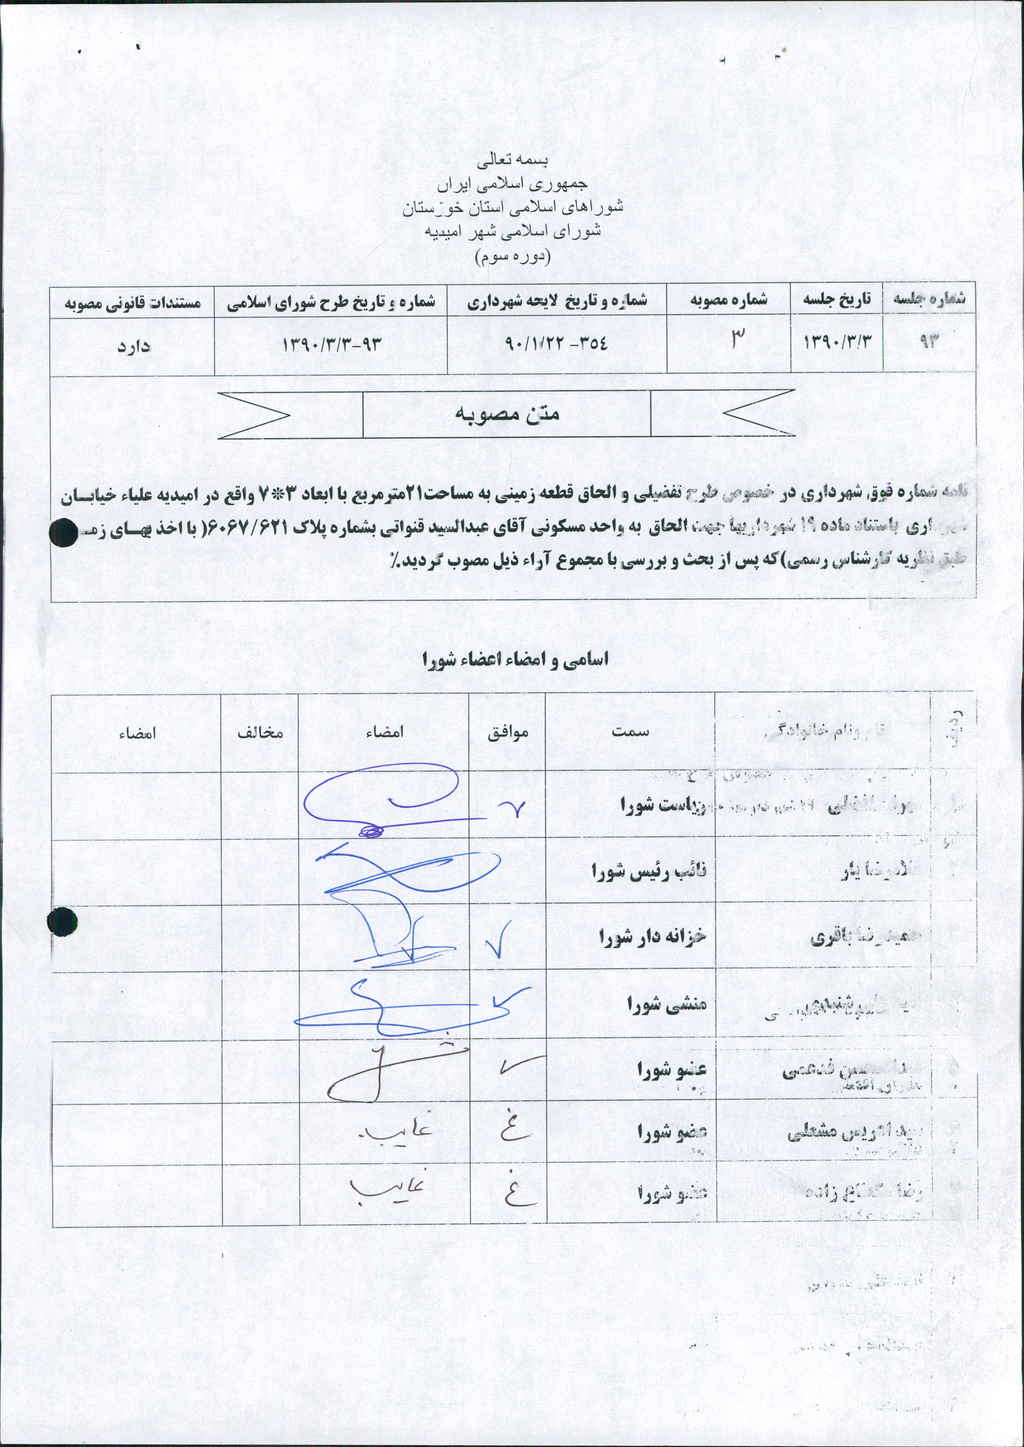 بسمه تعالی
جمهوری اسلامی ایران
شوراهای اسلامی استان خوزستان
شورای اسلامی شهر امیدیه
(دوره سوم)
شماره جلسه تاریخ جلسه شماره مصوبه شماره و تاریخ لایحه شهرداری شماره و تاریخ طرح شورای اسلامی مستندات قانونی مصوبه
۹۳ ۱۳۹۰/۳/۳ ۳ ۳۵۴- ۹۰/۱/۲۲ ۹۳-۱۳۹۰/۳/۳ دارد
متن مصوبه
نامه شماره فوق شهرداری در خصوص طرح تفضیلی و الحاق قطعه زمینی به مساحت۲۱مترمربع با ابعاد ۳*۷ واقع در امیدیه علیاء خیابان
شهرداری باستناد ماده ۱۹ شهرداریها جهت الحاق به واحد مسکونی آقای عبدالسید قنواتی بشماره پلاک ۶۰۶۷/۶۲۱( با اخذ بهای
طبق نظریه کارشناس رسمی)که پس از بحث و بررسی با مجموع آراء ذیل مصوب گردید.٪
اسامی و امضاء اعضاء شورا
ردیف ونام خانوادگی سمت موافق امضاء مخالف امضاء
ریاست شورا
نائب رئیس شورا
حمیدرضا باقری خزانه دار شورا
منشی شورا
عضو شورا
سید ادریس مشعلی عضو شورا غ غایب
رضا زاده عضو شورا غ غایب